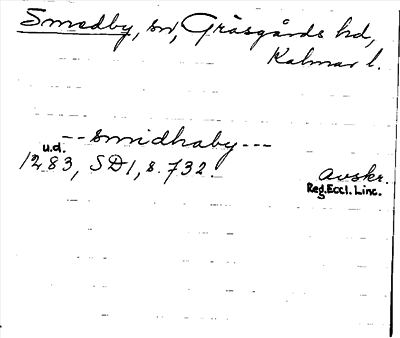 Smedby, sn, Gräsgårds hd,
Kalmar l.
-- smidhaby ---
u.d.
1283, SD1, s. 732.
avskr.
Reg. Eccl. Linc.